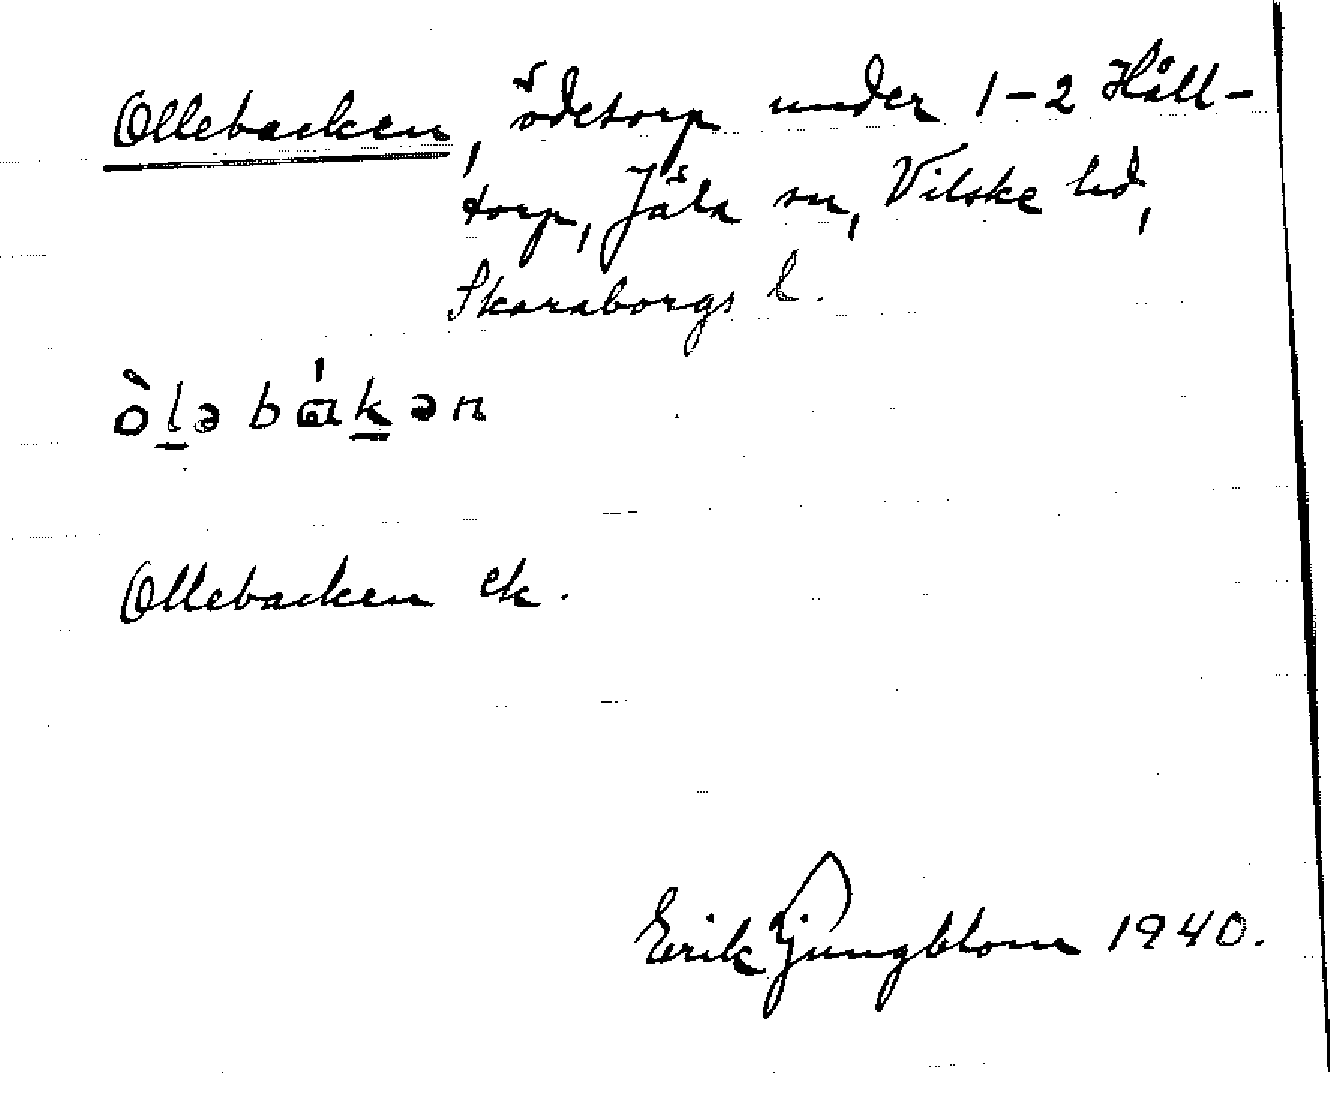 Ollebacken, ödetorp under 1-2 Håll-
torp, Jäla sn, Vilske hd,
Skaraborgs l.
òl̲əbák̲ən
Ollebacken ek.
Erik Ljungblom 1940.